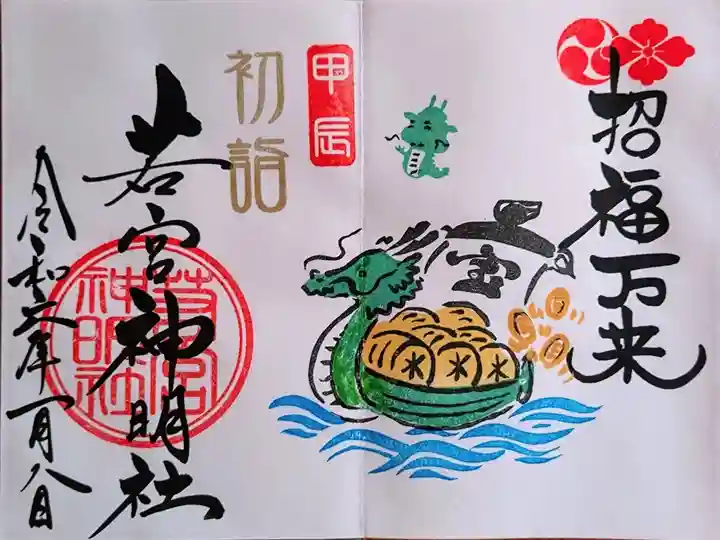 招福万来
宝
米米米
甲辰
初詣
若宮神明社
若宮
神明社
令和六年一月八日